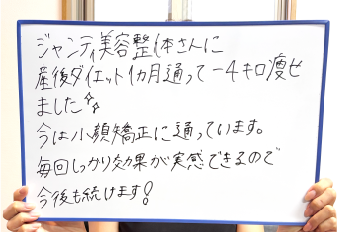 ジャンティ美容整体さんに
産後ダイエット1カ月通って−4キロ痩せ
ました✨
今は小顔矯正に通っています。
毎回しっかり効果が実感できるので
今後も続けます!